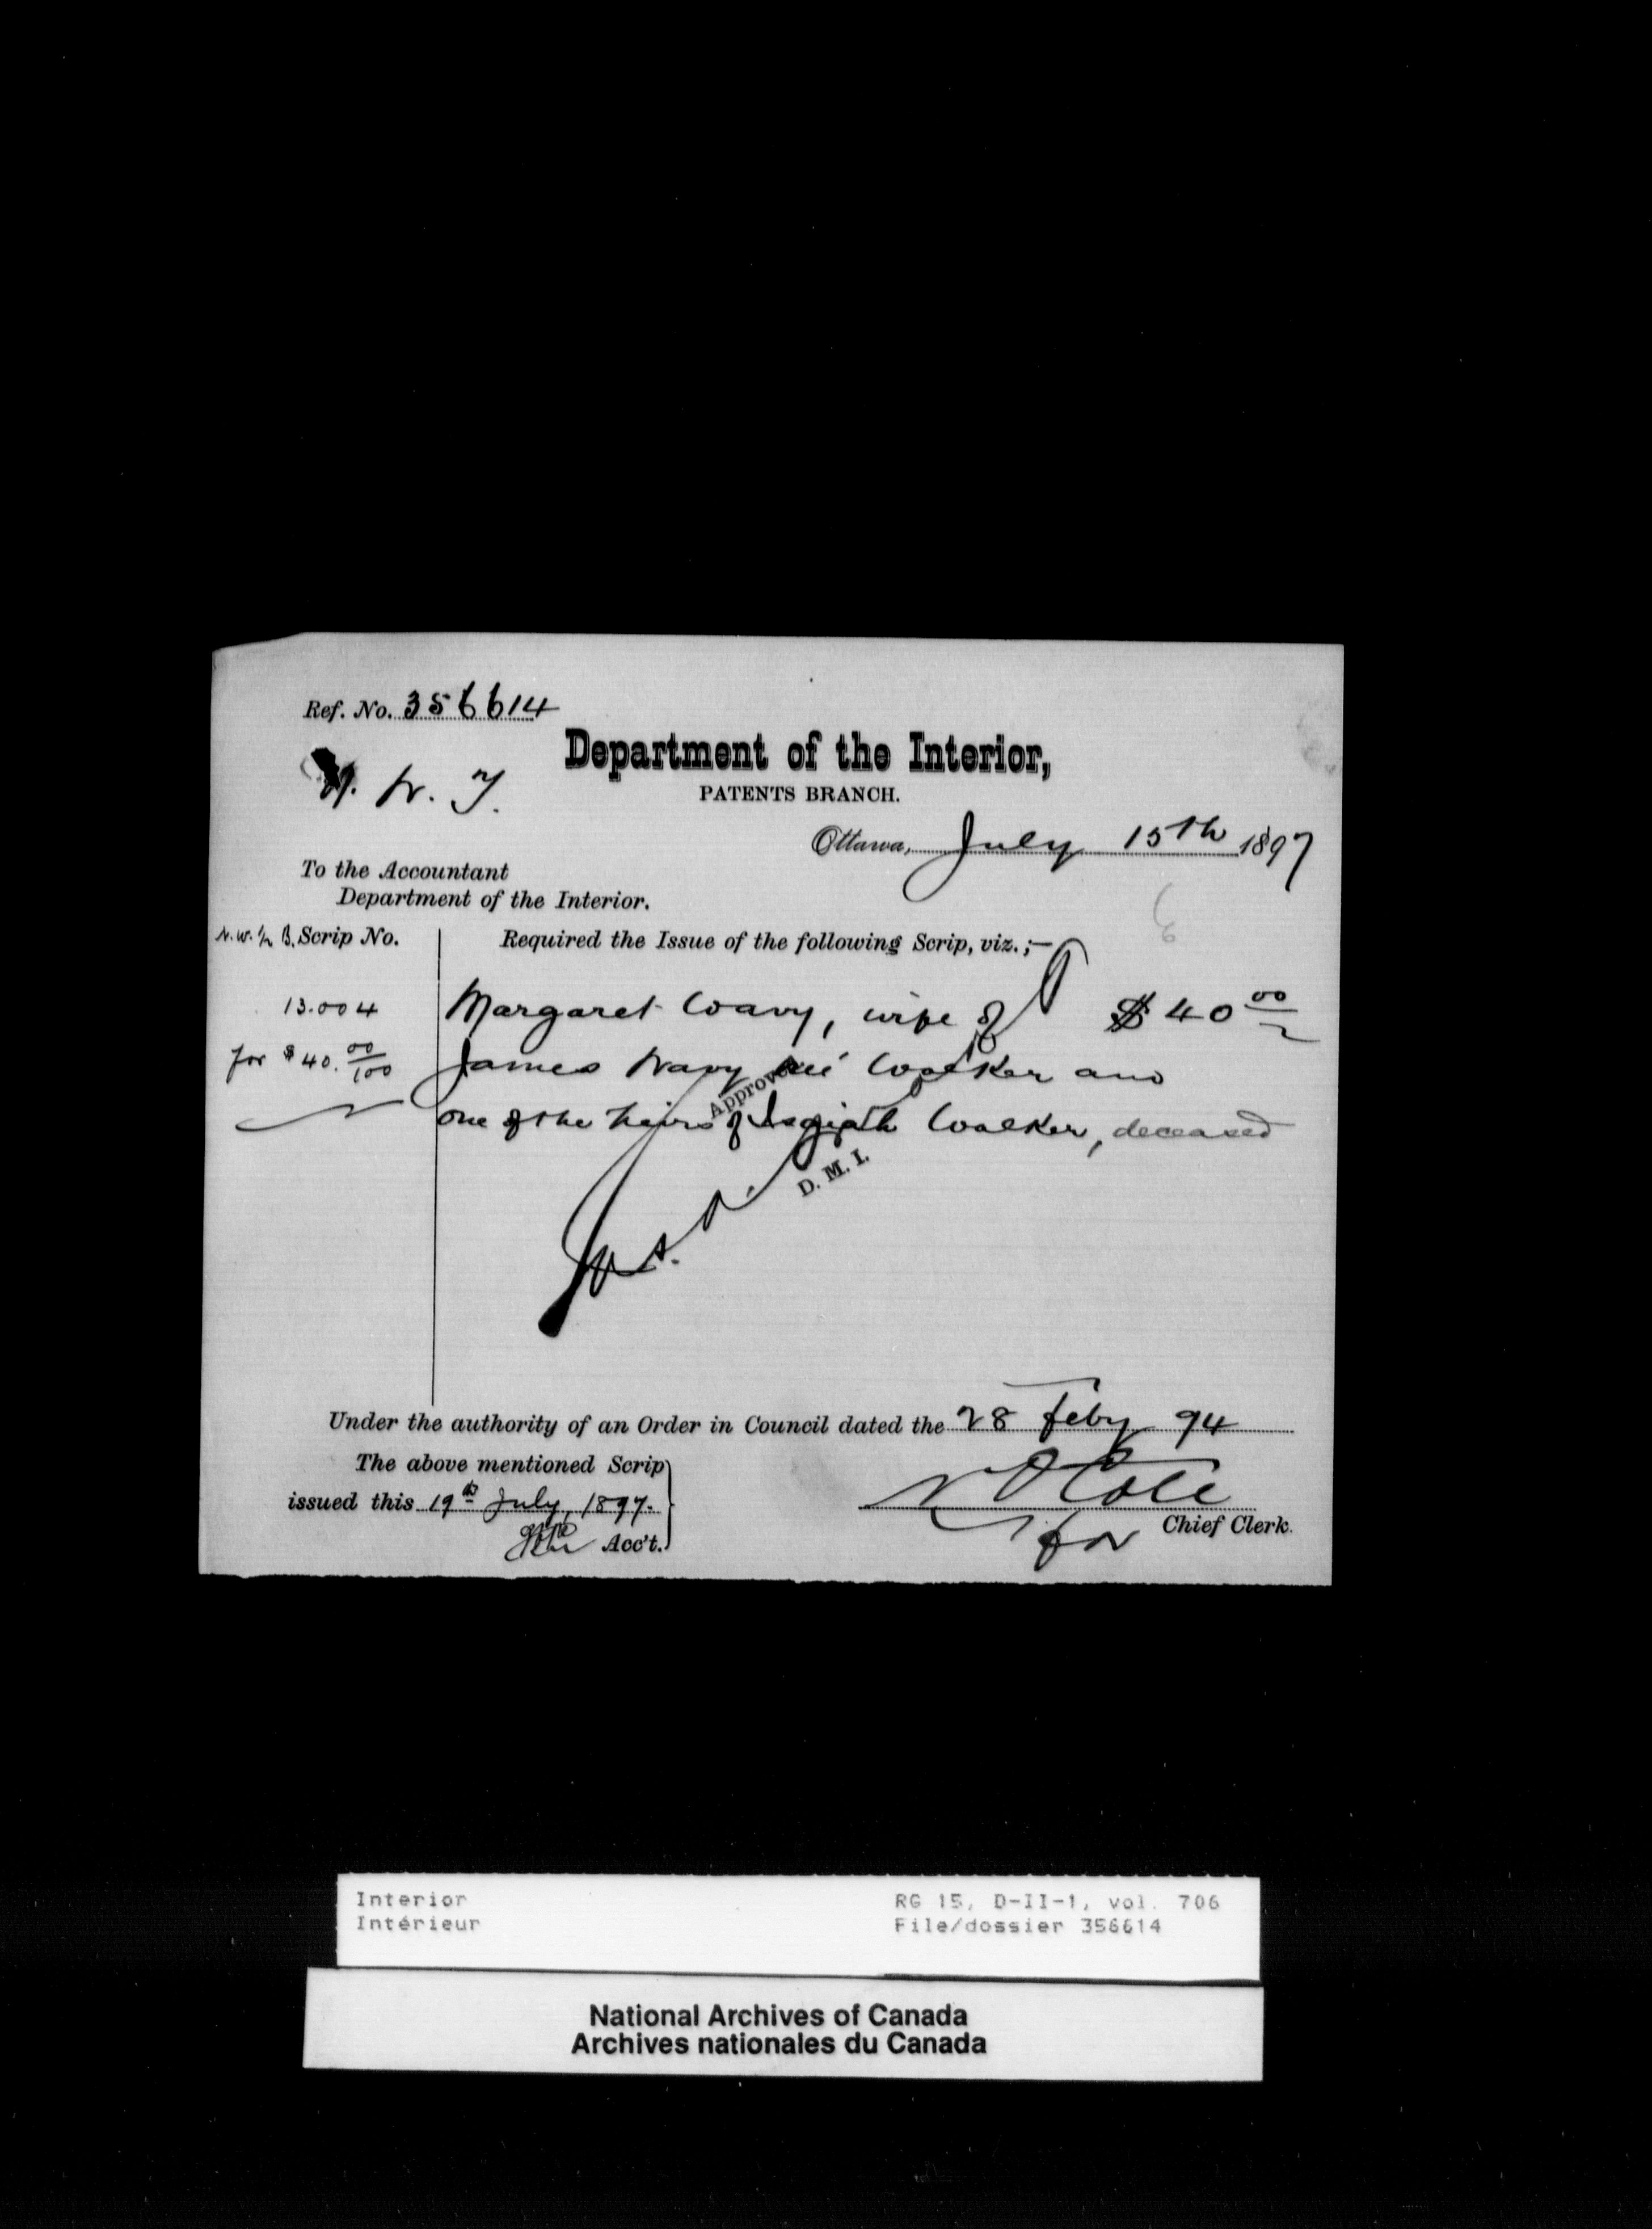 Ref. No. 356614
N. W. T.
Department of the Interior,
PATENTS BRANCH.
Ottawa, July 15th 1897
To the Accountant
Department of the Interior.
N.W. ½ B. Scrip No.
Required the Issue of the following Scrip, viz.;—
13.004
Margaret Wavy, wife of $40 00
for $40. 00/100
James Wavy neé Walker and
Approved
one of the heirs of Walker, deceased
D. M. I.
Under the authority of an Order in Council dated the 28 Feby 94
The above mentioned Scrip
issued this 19th July, 1897.
Acc't.
Cote
for Chief Clerk.
Interior
Intérieur
RG 15, D-II-1, vol. 706
File/dossier 356614
National Archives of Canada
Archives nationales du Canada